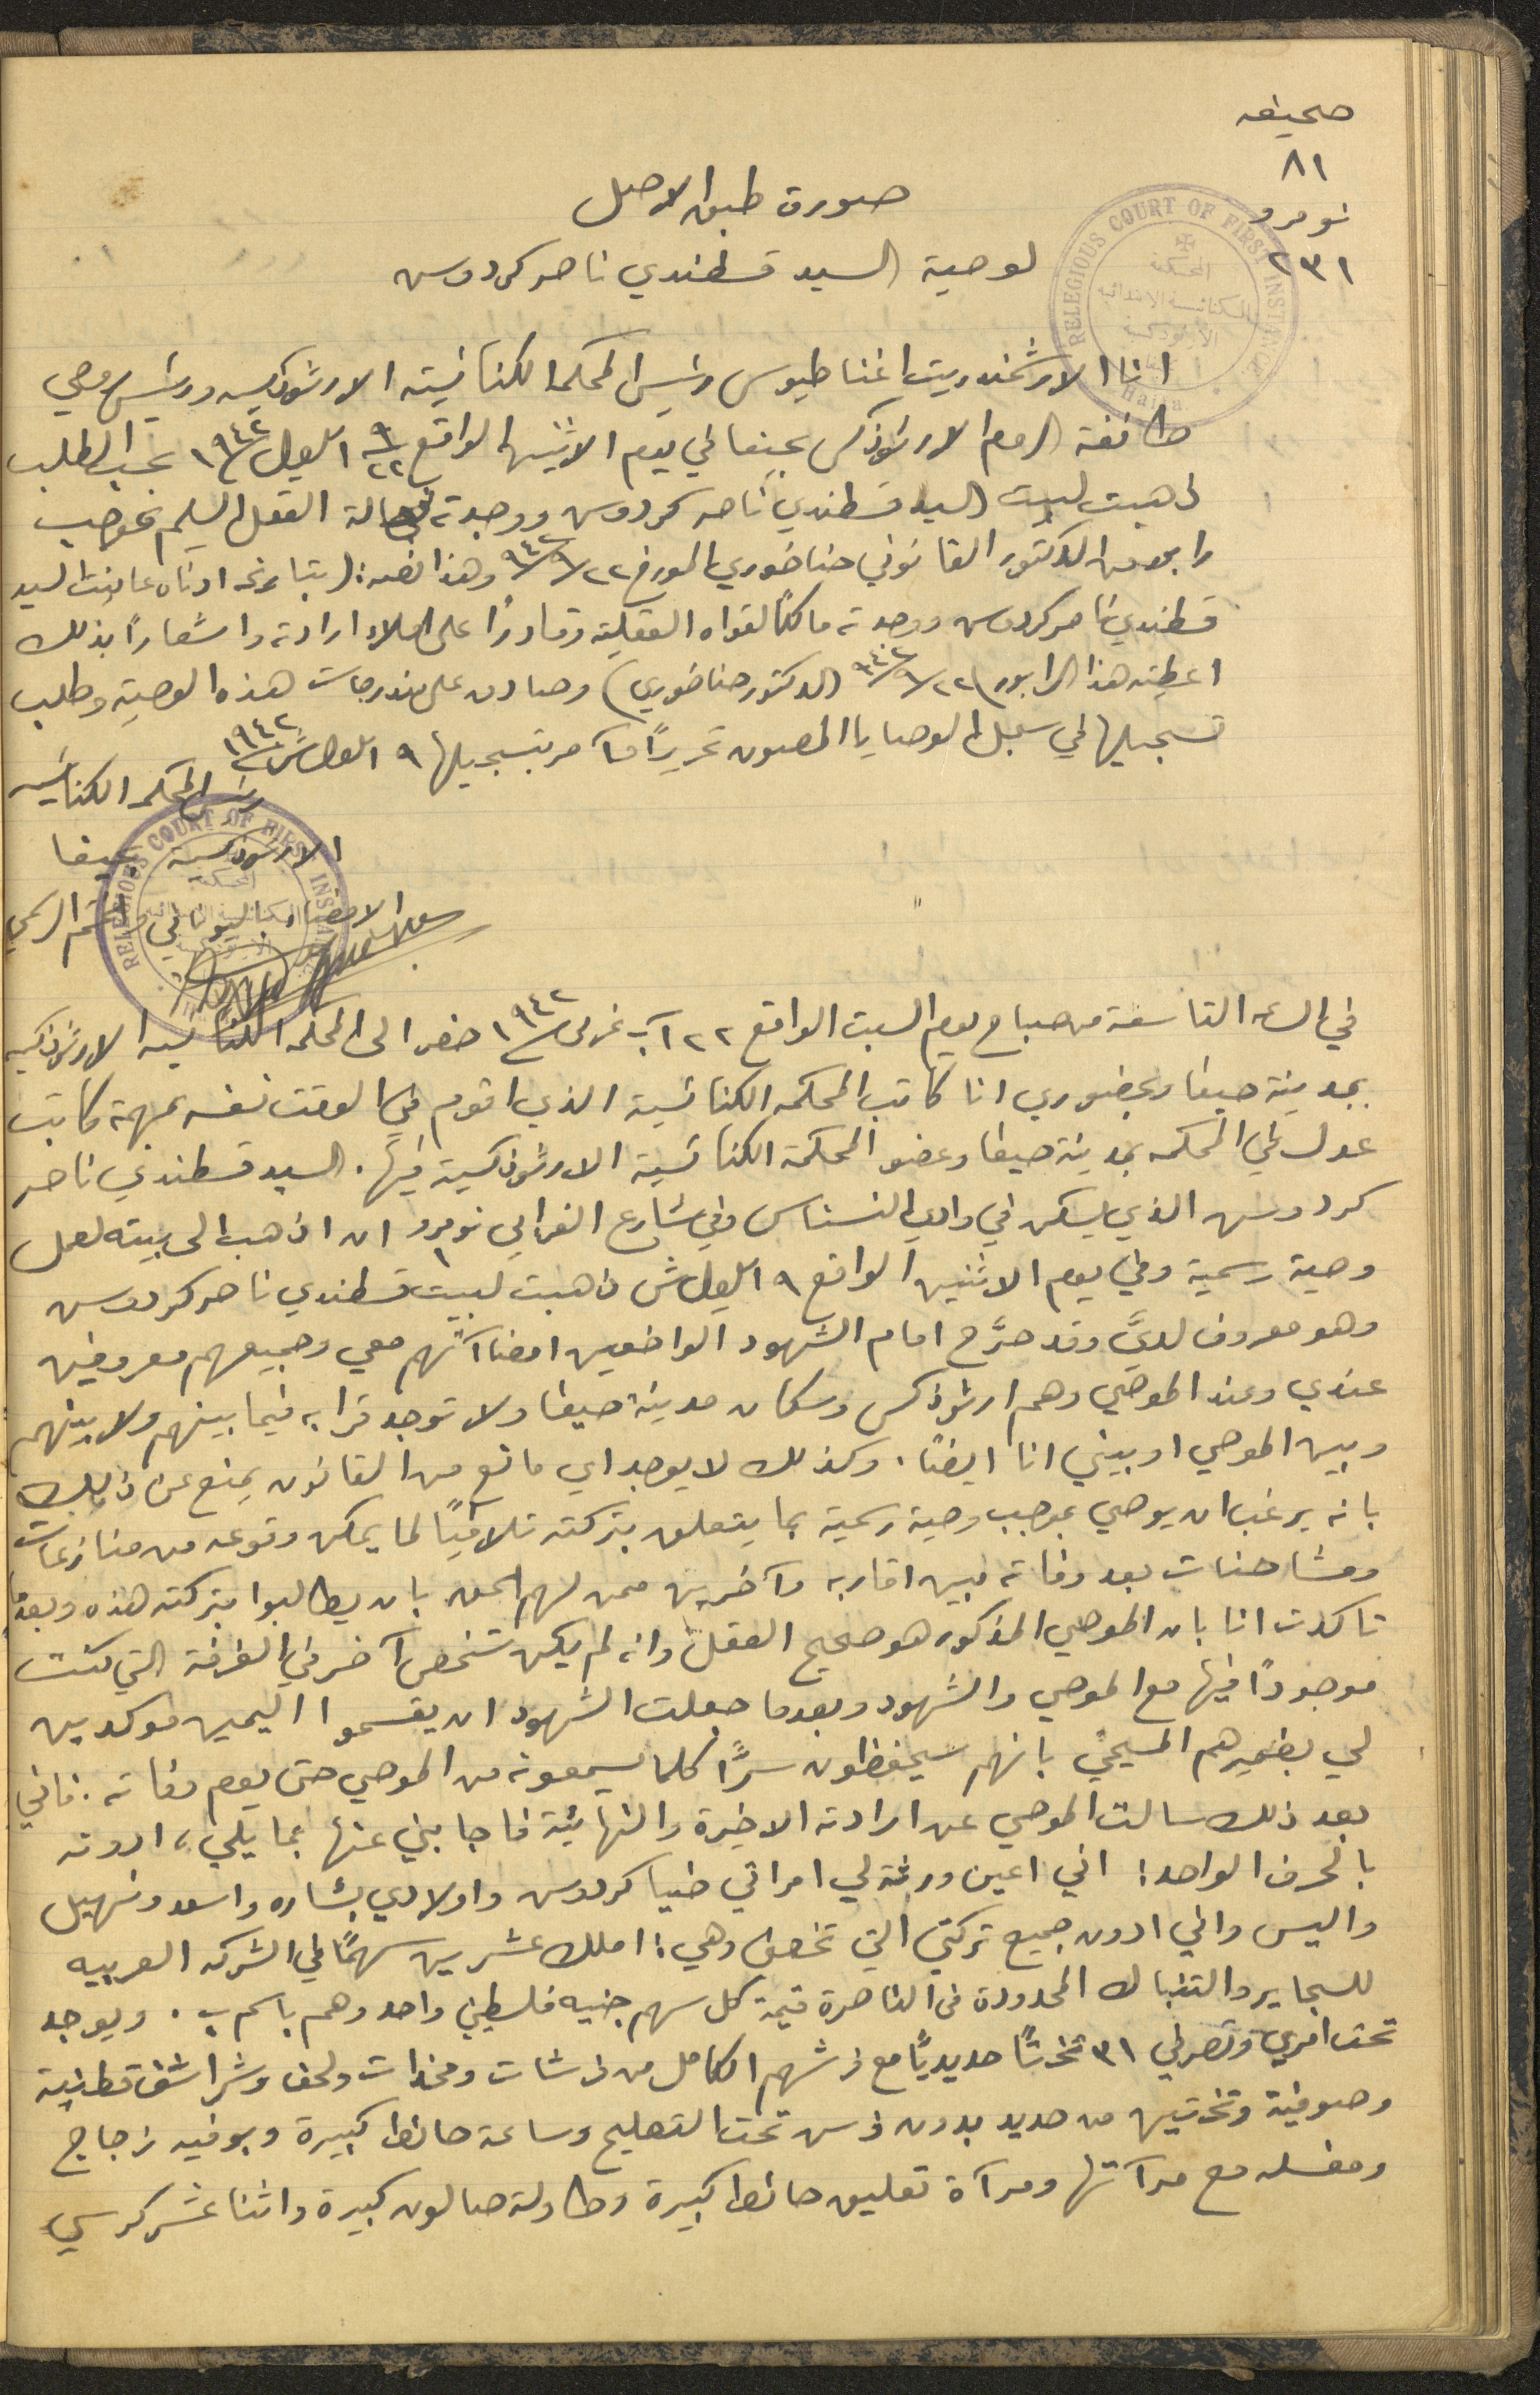 صحيفه
٨١
نومرو
٢٣١
صورة طبق الاصل
لوصية السيد قسطندي ناصر كردوس
RELEGIOUS COURT OF FIRST INSTANCE
المحكمة
الكنائسية الابتدائية
الأرثوذكسية
Haifa
انا الارشمندريت اغناطيوس رئيس المحكمة الكنائسية الارثوذكسيه ورئيس روحي
طائفة الروم الارثوذكس بحيفا في يوم الاثنين الواقع ٩/٢٢ ايلول سنة ١٩٤٢ بحسب الطلب
ذهبت لبيت السيد قسطندي ناصر كردوس ووجدته في حالة العقل السليم بموجب
رابور من الدكتور القانوني حنا خوري المورخ ٢٢/٩/٩٤٢ وهذا نصه: (بتاريخه ادناه عاينت السيد
قسطندي ناصر كردوس ووجدته مالكًا لقواه العقلية وقادرًا على املاء ارادته واشعارًا بذلك
اعطيته هذا الرابور ٢٢/٩/٩٤٢ (الدكتور حنا خوري) وصادق على مندرجات هذه الوصية وطلب
تسجيلها في سجل الوصايا المصون تحريرًا وآمر بتسجيلها ٩ ايلول ش سنة ١٩٤٢
رئيس المحكمة الكنائسيه
الارثوذكسية بحيفا
الامضاء باليوناني ختم الرسمي
RELEGIOUS COURT OF FIRST INSTANCE
المحكمة
في الساعة التاسعة من صباح يوم السبت الواقع ٢٢ آب غربي سنة ١٩٤٢ حضر الى المحكمة الكنائسيه الارثوذكسيه
بمدينة حيفا وبحضوري انا كاتب المحكمة الكنائسية الذي اقوم في الوقت نفسه بمهمة كاتب
عدل في المحكمه بمدينة حيفا وعضو المحكمة الكنائسية الارثوذكسية فيها. السيد قسطندي ناصر
كردوس الذي يسكن في وادي النسناس وفي شارع الفرابي نومرو ١ ان اذهب الى بيته لعمل
وصية رسمية وفي يوم الاثنين الواقع ٩ ايلول ش ذهبت لبيت قسطندي ناصر كردوس
وهو معروف لديَّ وقد صرَّح امام الشهود الواضعين امضاآتهم معي وجميعهم معروفين
عندي وعند الموصي وهم ارثوذكس وسكان مدينة حيفا ولا توجد قرابه فيما بينهم ولا بينهم
وبين الموصي او بيني انا ايضًا. وكذلك لا يوجد اي مانع من القانون يمنع عن ذلك
بانه يرغب ان يوصي بموجب وصية رسمية بما يتعلق بتركته تلافيًا لما يمكن وقوعه من منازعات
ومشاحنات بعد وفاته فبين اقاربه وآخرين ممن لهم الحق بان يطالبوا بتركته هذه وبعدما
تاكدت انا بان الموصي المذكور هو صحيح العقل وانه لم يكن شخص آخر في الغرفة التي كنت
موجودًا فيها مع الموصي والشهود وبعدما جعلت الشهود ان يقسموا اليمين موكدين
لي بضميرهم المسيحي بانهم سيحفظون سرًّا كلما يسمعونه من الموصي حتى يوم وفاته. فاني
بعد ذلك سالت الموصي عن ارادته الاخيرة والنهائية فاجابني عنها بما يلي، ادونه
بالحرف الواحد: اني اعين ورثة لي امراتي ضيا كردوس واولادي بشاره واسعد وسهيل
واليس واني ادون جميع تركتي التي تخصني وهي: املك عشرين سهمًا في الشركه العربيه
للسجاير والتنباك المحدودة في الناصرة قيمة كل سهم جنيه فلسطيني واحد وهم باسم ب. ويوجد
تحت امري وتصرفي ٣١ تختًا حديديًّا مع فرشهم الكامل من فرشات ومخدات ولحف وشراشف قطنية
وصوفية وتختين من حديد بدون فرش تحت التصليح وساعة حائط كبيرة وبوفيه زجاج
ومغسله مع مرآتها ومرآة تعليق حائط كبيرة وطاولة صالون كبيرة واثنا عشر كرسي